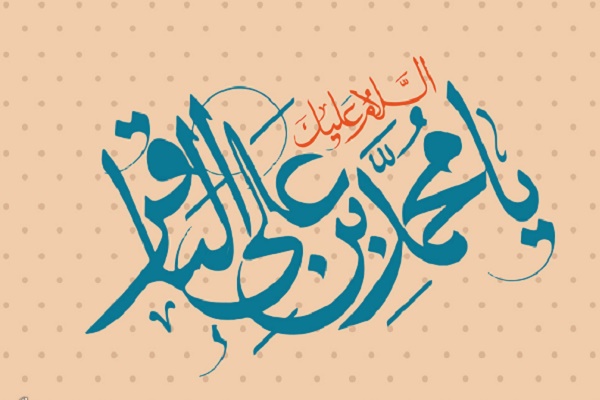 السَّلامُ علیك
یا مُحَمَّدَ بنَ علیٍ الباقر